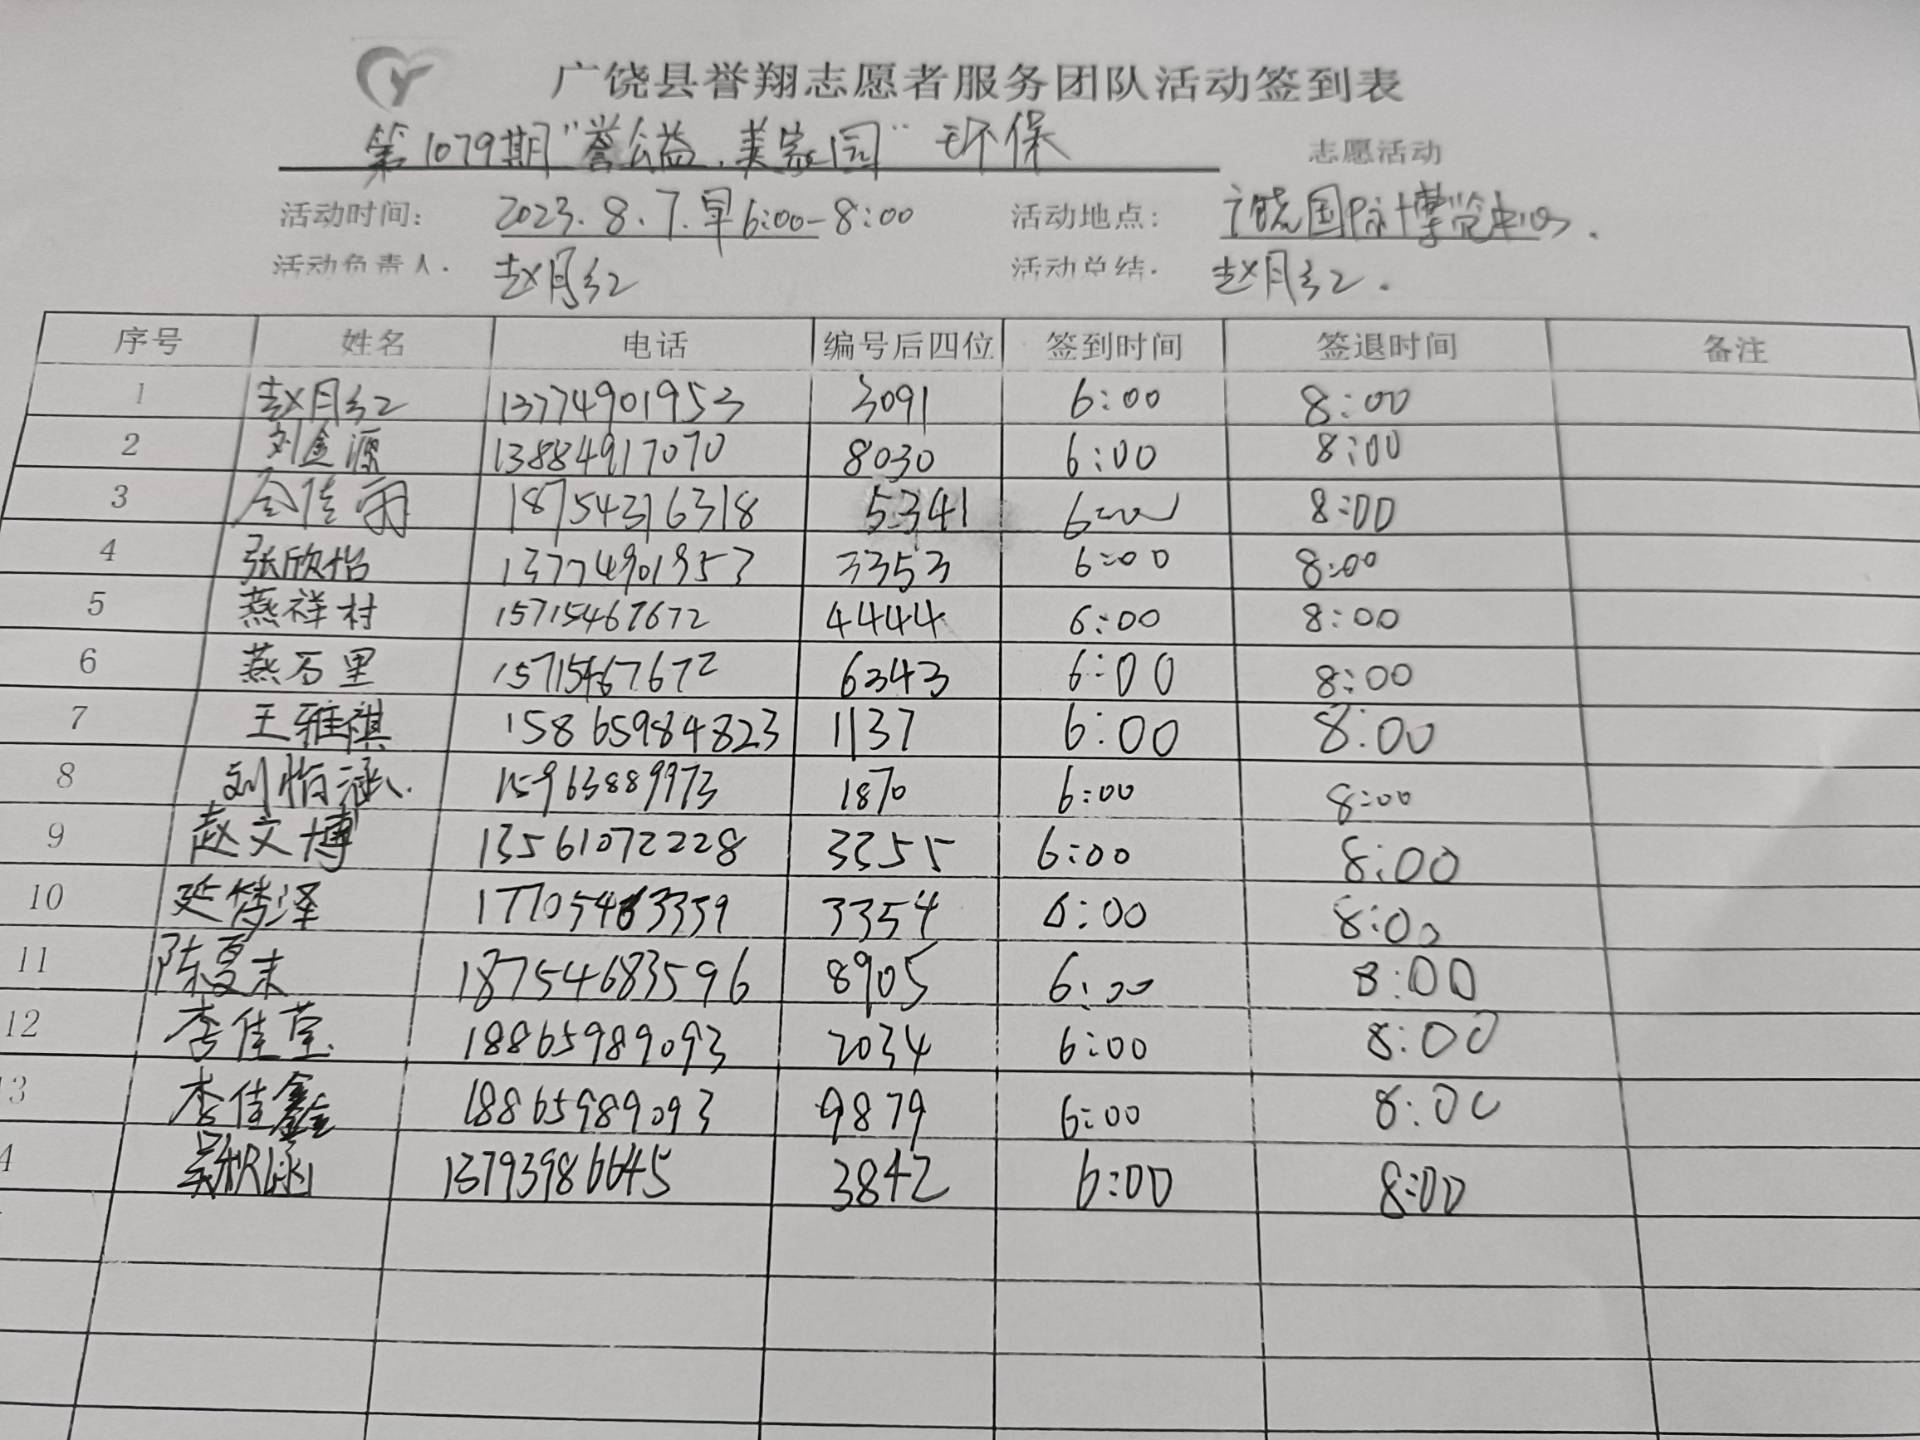 广饶县誉翔志愿者服务团队活动签到表
第1079期“誉公益.美家园”环保 志愿活动
活动时间: 2023.8.7.早6:00-8:00 活动地点: 广饶国际博览中心.
活动负责人: 赵月红 活动总结: 赵月红.
序号 姓名 电话 编号后四位 签到时间 签退时间 备注
1 赵月红 13774901953 3091 6:00 8:00
2 刘金源 13884917070 8030 6:00 8:00
3 佳雨 18754316318 5341 6:00 8:00
4 张欣怡 13774901953 3353 6:00 8:00
5 燕祥村 15715467672 4444 6:00 8:00
6 燕万里 15715467672 6343 6:00 8:00
7 王雅祺 15865984823 1137 6:00 8:00
8 刘怡涵 15963889973 1870 6:00 8:00
9 赵文博 13561072228 3355 6:00 8:00
10 延梦泽 3354 6:00 8:00
11 陈夏末 18754683596 8905 6:00 8:00
12 李佳莹 18865989093 2034 6:00 8:00
13 李佳鑫 18865989093 9879 6:00 8:00
4 吴 涵 13793986645 3842 6:00 8:00